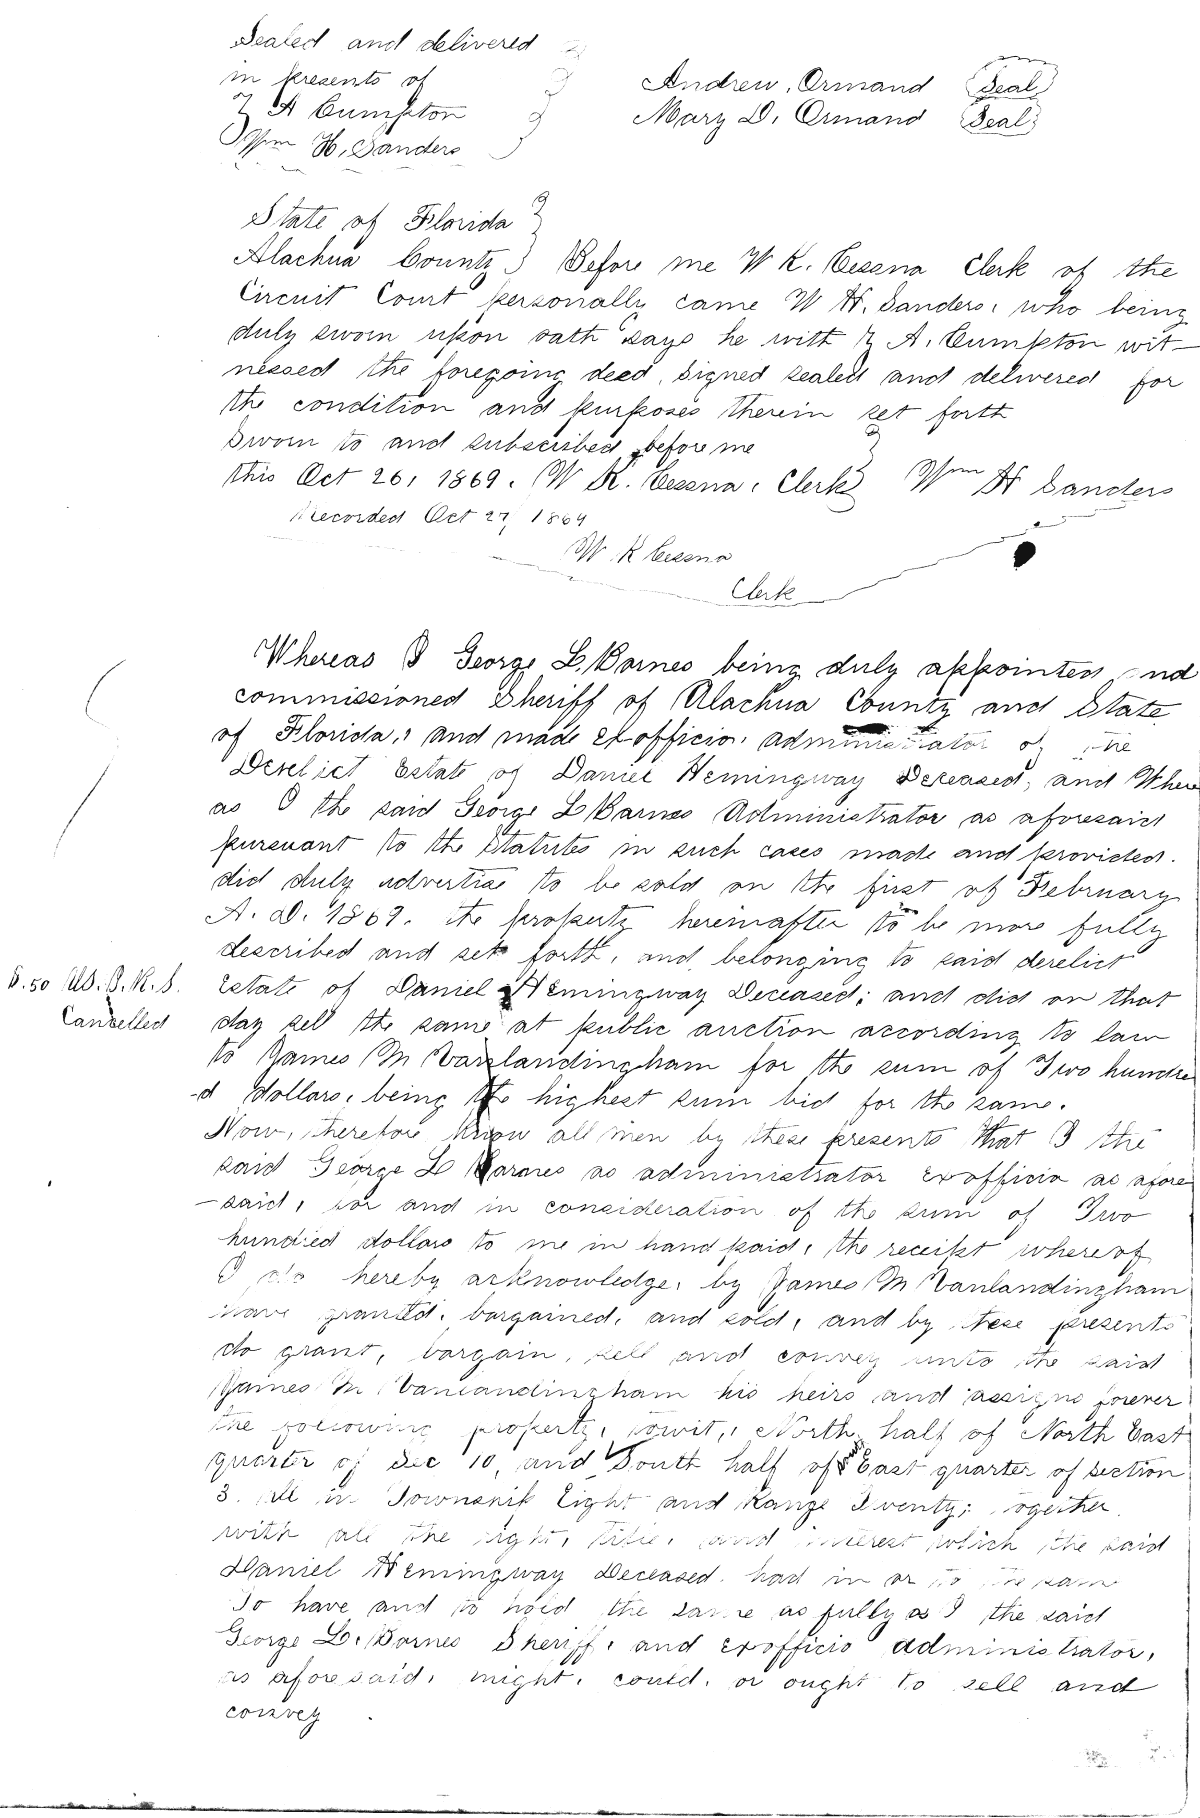 Sealed and delivered
in presents of
Andrew, Ormand Seal
A Cumpton
Mary D. Ormand Seal
Wm H, Sanders
State of Florida
Alachua County Before me W K. Cessna Clerk of the
Circuit Court personally came W H. Sanders, who being
duly sworn upon oath says he with A. Cumpton wit-
nessed the foregoing deed, signed sealed and delivered for
the condition and purposes therein set forth
Sworn to and subscribed before me
this Oct 26, 1869. W K. Cessna, Clerk Wm H Sanders
Recorded Oct 27, 1869
W. K Cessna
Clerk
Whereas I George L, Barnes being duly appointed and
commissioned Sheriff of Alachua County and State
of Florida, and made exofficio administrator of the
Derelict Estate of Daniel Hemingway Deceased, and Where
as I the said George L Barnes Administrator as aforesaid
pursuant to the Statutes in such cases made and provided.
did duly advertise to be sold on the first of February
A. D. 1869. the property hereinafter to be more fully
described and set forth, and belonging to said derelict
$.50 U.S.I.R.S. Estate of Daniel Hemingway Deceased; and did on that
Cancelled day sell the same at public auction according to law
to James M Vanlandingham for the sum of Two hundre
-d dollars, being the highest sum bid for the same.
Now, therefore know all men by these presents that I the
said George L Barnes as administrator exofficio as afore
-said, for and in consideration of the sum of Two
hundred dollars to me in hand paid, the receipt whereof
I do hereby acknowledge, by James M Vanlandingham
have granted, bargained, and sold, and by these presents
do grant, bargain, sell and convey unto the said
James M Vanlandingham his heirs and assigns forever
the following property, towit,, North half of North East
quarter of Sec 10, and South half of East quarter of section
3. all in Township Eight and Range Twenty; together
with all the right, title, and interest which the said
Daniel Hemingway Deceased. had in or to the same
To have and to hold the same as fully as I the said
George L. Barnes Sheriff, and exofficio administrator,
as aforesaid, might, could, or ought to sell and
convey .